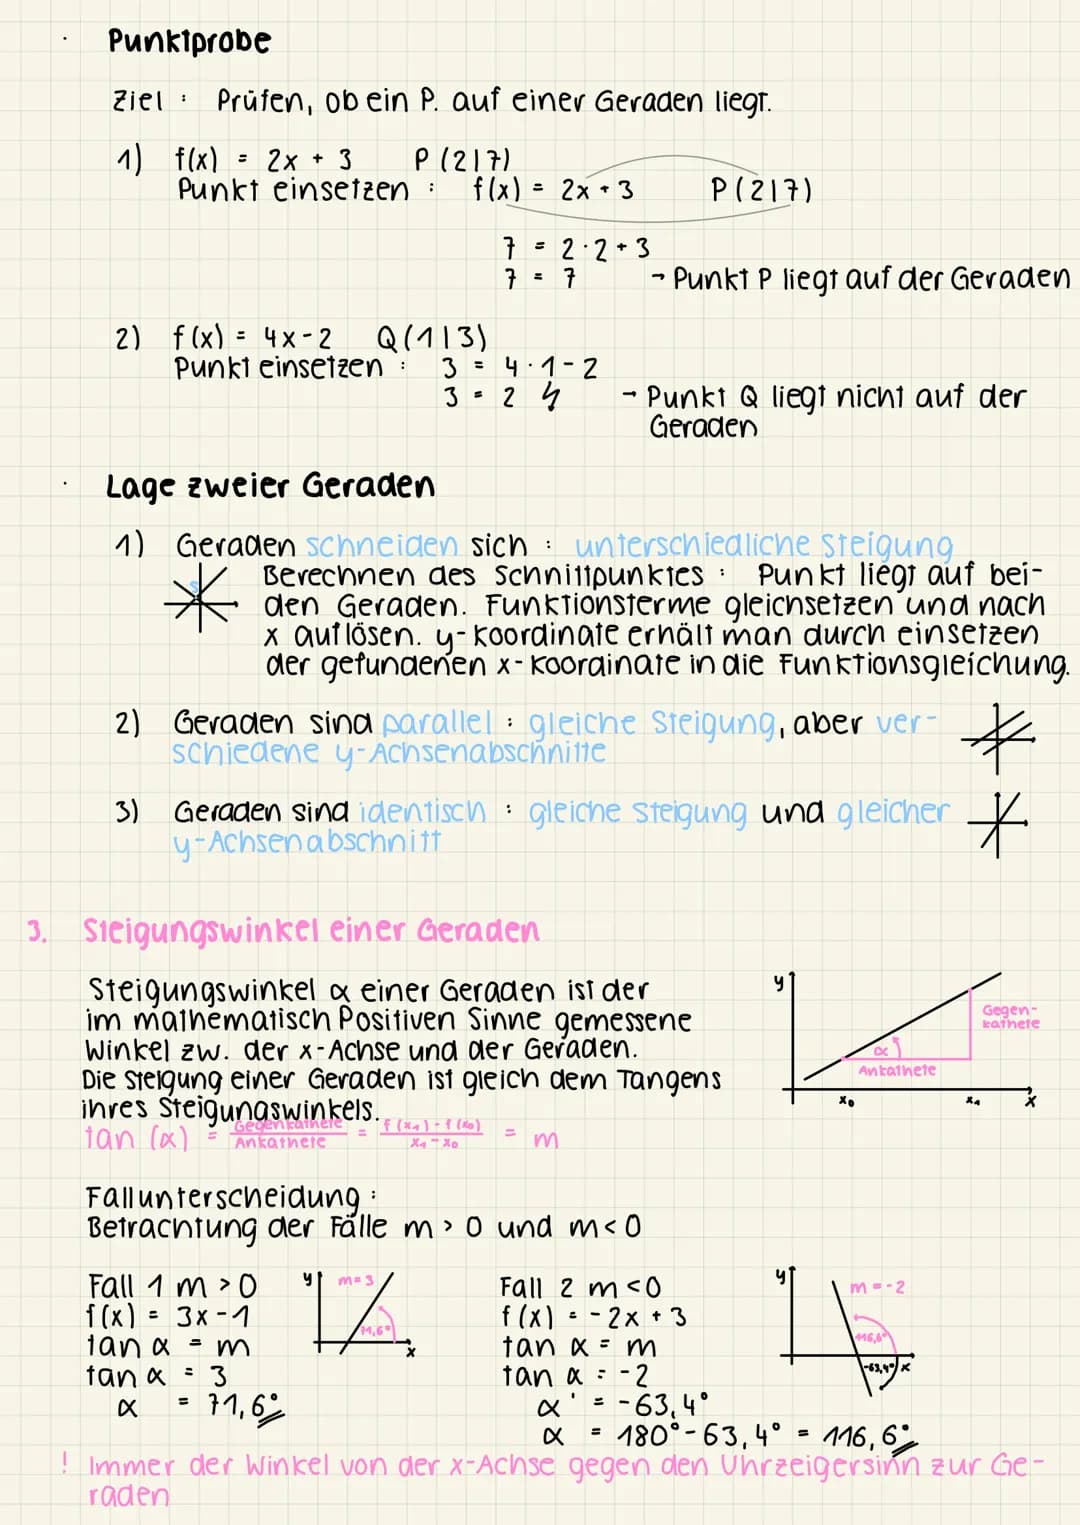 · Punktprobe
Ziel : Prüfen, ob ein P. auf einer Geraden liegt.
1) f(x) = 2x + 3 P (2|7)
Punkt einsetzen : f(x) = 2x + 3 P(2|7)
7 = 2 · 2 + 3
7 = 7 → Punkt P liegt auf der Geraden
2) f(x) = 4x - 2 Q (1|3)
Punkt einsetzen : 3 = 4 · 1 - 2
3 = 2 ↯ → Punkt Q liegt nicht auf der
Geraden
· Lage zweier Geraden
1) Geraden schneiden sich : unterschiedliche Steigung
S
Berechnen des Schnittpunktes : Punkt liegt auf bei-
den Geraden. Funktionsterme gleichsetzen und nach
x auflösen. y-Koordinate erhält man durch einsetzen
der gefundenen x-Koordinate in die Funktionsgleichung.
2) Geraden sind parallel : gleiche Steigung, aber ver-
schiedene y-Achsenabschnitte
3) Geraden sind identisch : gleiche Steigung und gleicher
y-Achsenabschnitt
3. Steigungswinkel einer Geraden
Steigungswinkel α einer Geraden ist der
im mathematisch Positiven Sinne gemessene
Winkel zw. der x-Achse und der Geraden.
Die Steigung einer Geraden ist gleich dem Tangens
ihres Steigungswinkels.
tan (α) = Gegenkathete / Ankathete = f(x₁) - f(x₀) / x₁ - x₀ = m
y
Gegen-
kathete
α
Ankathete
x₀ x₁ x
Fallunterscheidung :
Betrachtung der Fälle m > 0 und m < 0
Fall 1 m > 0
f(x) = 3x - 1
tan α = m
tan α = 3
α = 71,6°
y m = 3
71,6°
x
Fall 2 m < 0
f(x) = - 2x + 3
tan α = m
tan α = - 2
α' = - 63,4°
α = 180° - 63,4° = 116,6°
y m = - 2
116,6°
-63,4° x
! Immer der Winkel von der x-Achse gegen den Uhrzeigersinn zur Ge-
raden